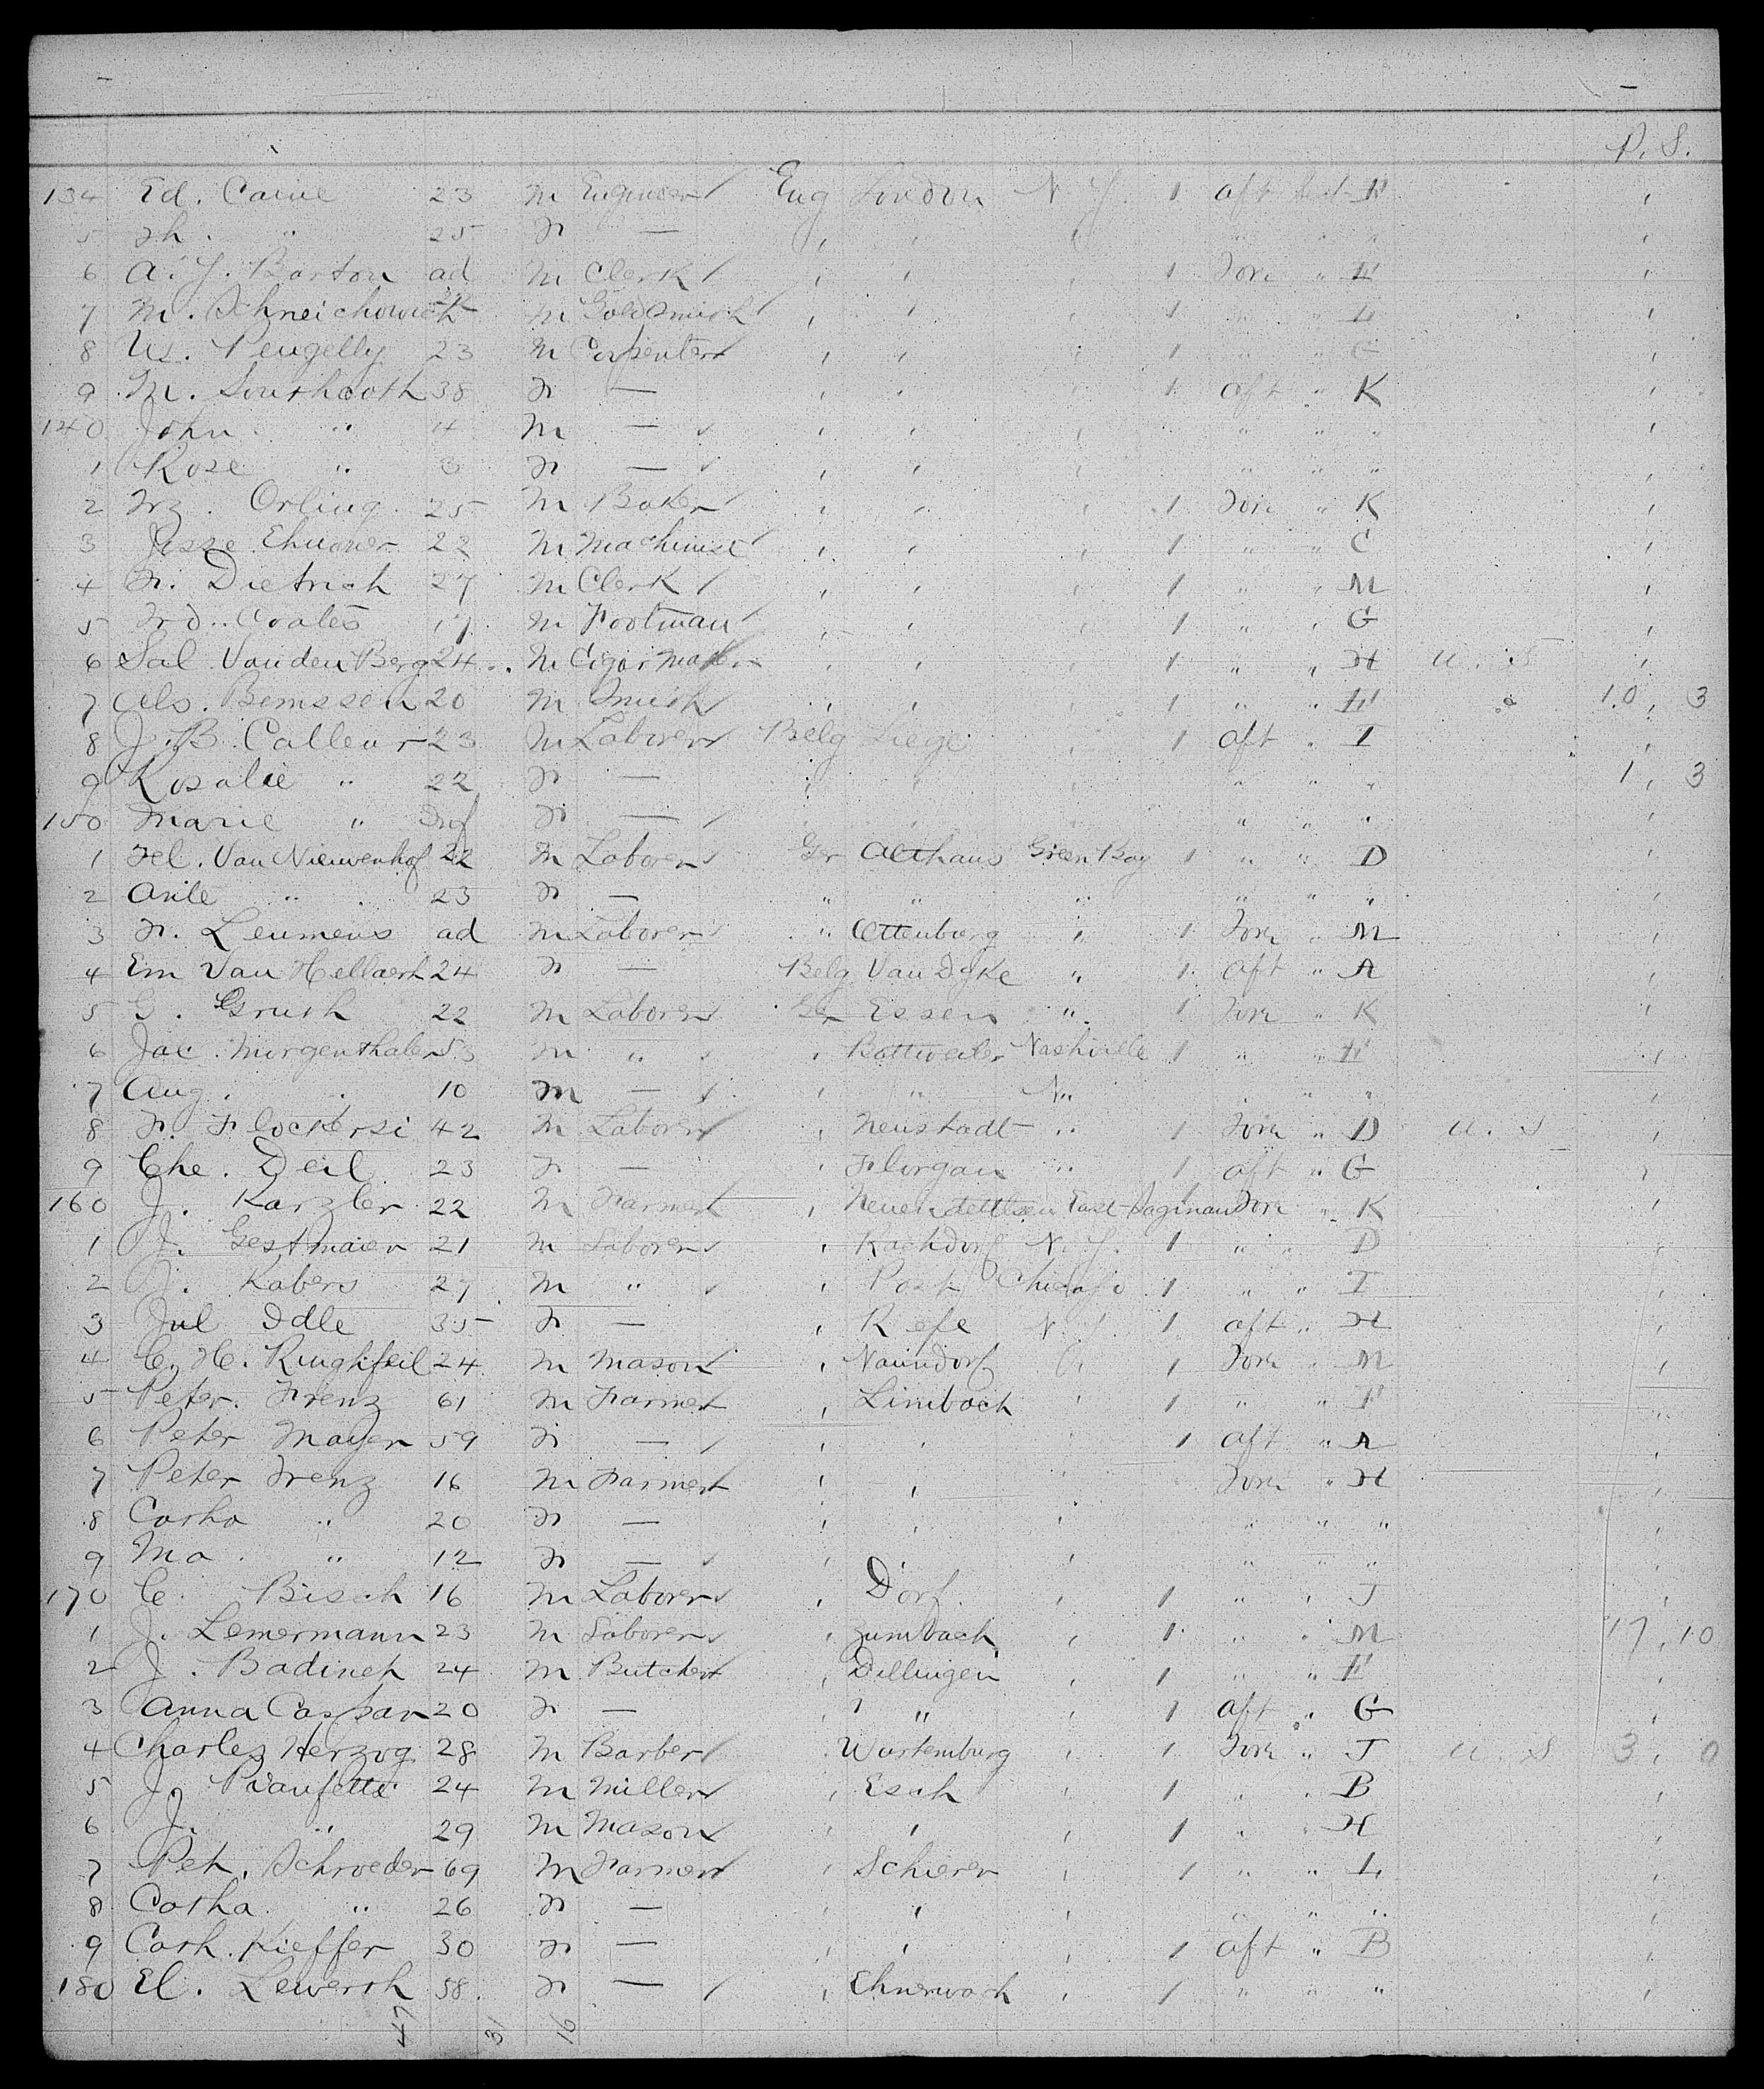 P. S.
134 Ed. Caine 23 M Engineer Eng London N. Y. 1 aft
5 Th. " 25 F — " "
6 A. J. Barton ad M Clerk 1 Fore " E
7 M. Schneichowich M Goldsmith 1 " "
8 Ws. Pengelly 23 M Carpenter 1 " " G
9 M. Southcoth 38 F — 1 aft " K
140 John " 4 M — " " "
1 Rose " 3 F — " " "
2 Frz. Orling 25 M Baker 1 Fore " K
3 Jesse Ehuoner 22 M Machinist 1 " " C
4 Fr. Dietrich 27 M Clerk 1 " " M
5 Frd. Coates 17 M Footman 1 " " G
6 Sal. Vanden Berg 24 M Cigar maker 1 " " H U. S
7 Als. Bemssen 20 M Smith 1 " " E 10, 3
8 J. B. Calleur 23 M Laborer Belg Liege 1 aft " I
9 Rosalie " 22 F — " " " 1, 3
150 Marie " Inf F — " " "
1 Fel. Van Nieuwenhof 22 M Laborer Ger Althaus Green Bay 1 " " D
2 Ante " 23 F — " " " " " "
3 Fr. Leumens ad M Laborer " Ottenburg " 1 Fore " M
4 Em Van Hellaerh 24 F — Belg Van Dyke " 1 aft " A
5 G. Grush 22 M Laborer Ger Essen " 1 Fore " K
6 Jac. Morgenthaler 53 M " Bottweiler Nashville 1 " " E
7 Aug. 10 M — " N " " " "
8 Fr. Flockersi 42 M Laborer Neustadt " 1 Fore " D U. S
9 Che. Deil 23 F — Florgan " 1 aft " G
160 J. Karzler 22 M Farmer Neuendettlsen East Saginaw Fore " K
1 J. Gestmaier 21 M Laborer Kachdorf N. Y. 1 " " D
2 J. Kabers 27 M " Posh Chicago 1 " " I
3 Jul Idle 35 F — Refe N. Y. 1 aft " H
4 C. H. Rughfeil 24 M Mason Naundorf 1 Fore " M
5 Peter Frenz 61 M Farmer Limbach 1 " " F
6 Peter Mayer 59 F — 1 aft " A
7 Peter Frenz 16 M Farmer Fore " H
8 Catha " 20 F — " " "
9 Ma. " 12 F — " " "
170 C. Bisch 16 M Laborer Dorf 1 " " J
1 J. Lemermann 23 M Laborer Zumbach 1 " " M 17, 10
2 J. Badineh 24 M Butcher Dillingen 1 " " E
3 Anna Caspar 20 F — " 1 aft " G
4 Charles Herzog 28 M Barber Wurtemburg 1 Fore " J U. S 3, 0
5 J. Pianfetti 24 M Miller Esch 1 " " B
6 J. " 29 M Mason 1 " " H
7 Pet. Schroeder 69 M Farmer Schierer 1 " " L
8 Catha. " 26 F — " " "
9 Cath. Kieffer 30 F — 1 aft " B
180 El. Lewersh 58 F — Ehnerwach 1 " " "
47 31 16